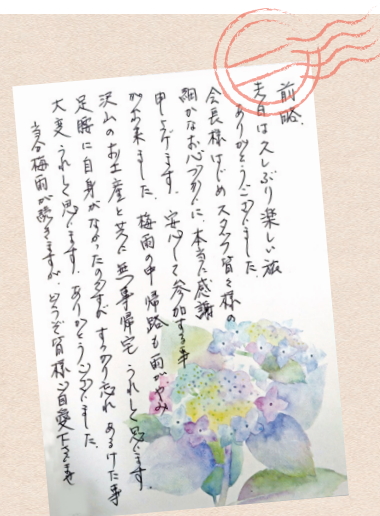 前略、
先日は久しぶり楽しい旅
ありがとうございました。
会長様はじめスタッフ皆々様の
細かなお心づかいに、本当に感謝
申上げます。安心して参加する事
が出来ました。梅雨の中帰路も雨がやみ
沢山のお土産と共に無事帰宅うれしく思います。
足腰に自身がなかったのですがすっかり忘れあるけた事
大変うれしく思います。ありがとうございました。
当分梅雨が続きますが、どうぞ皆様ご自愛下さいませ